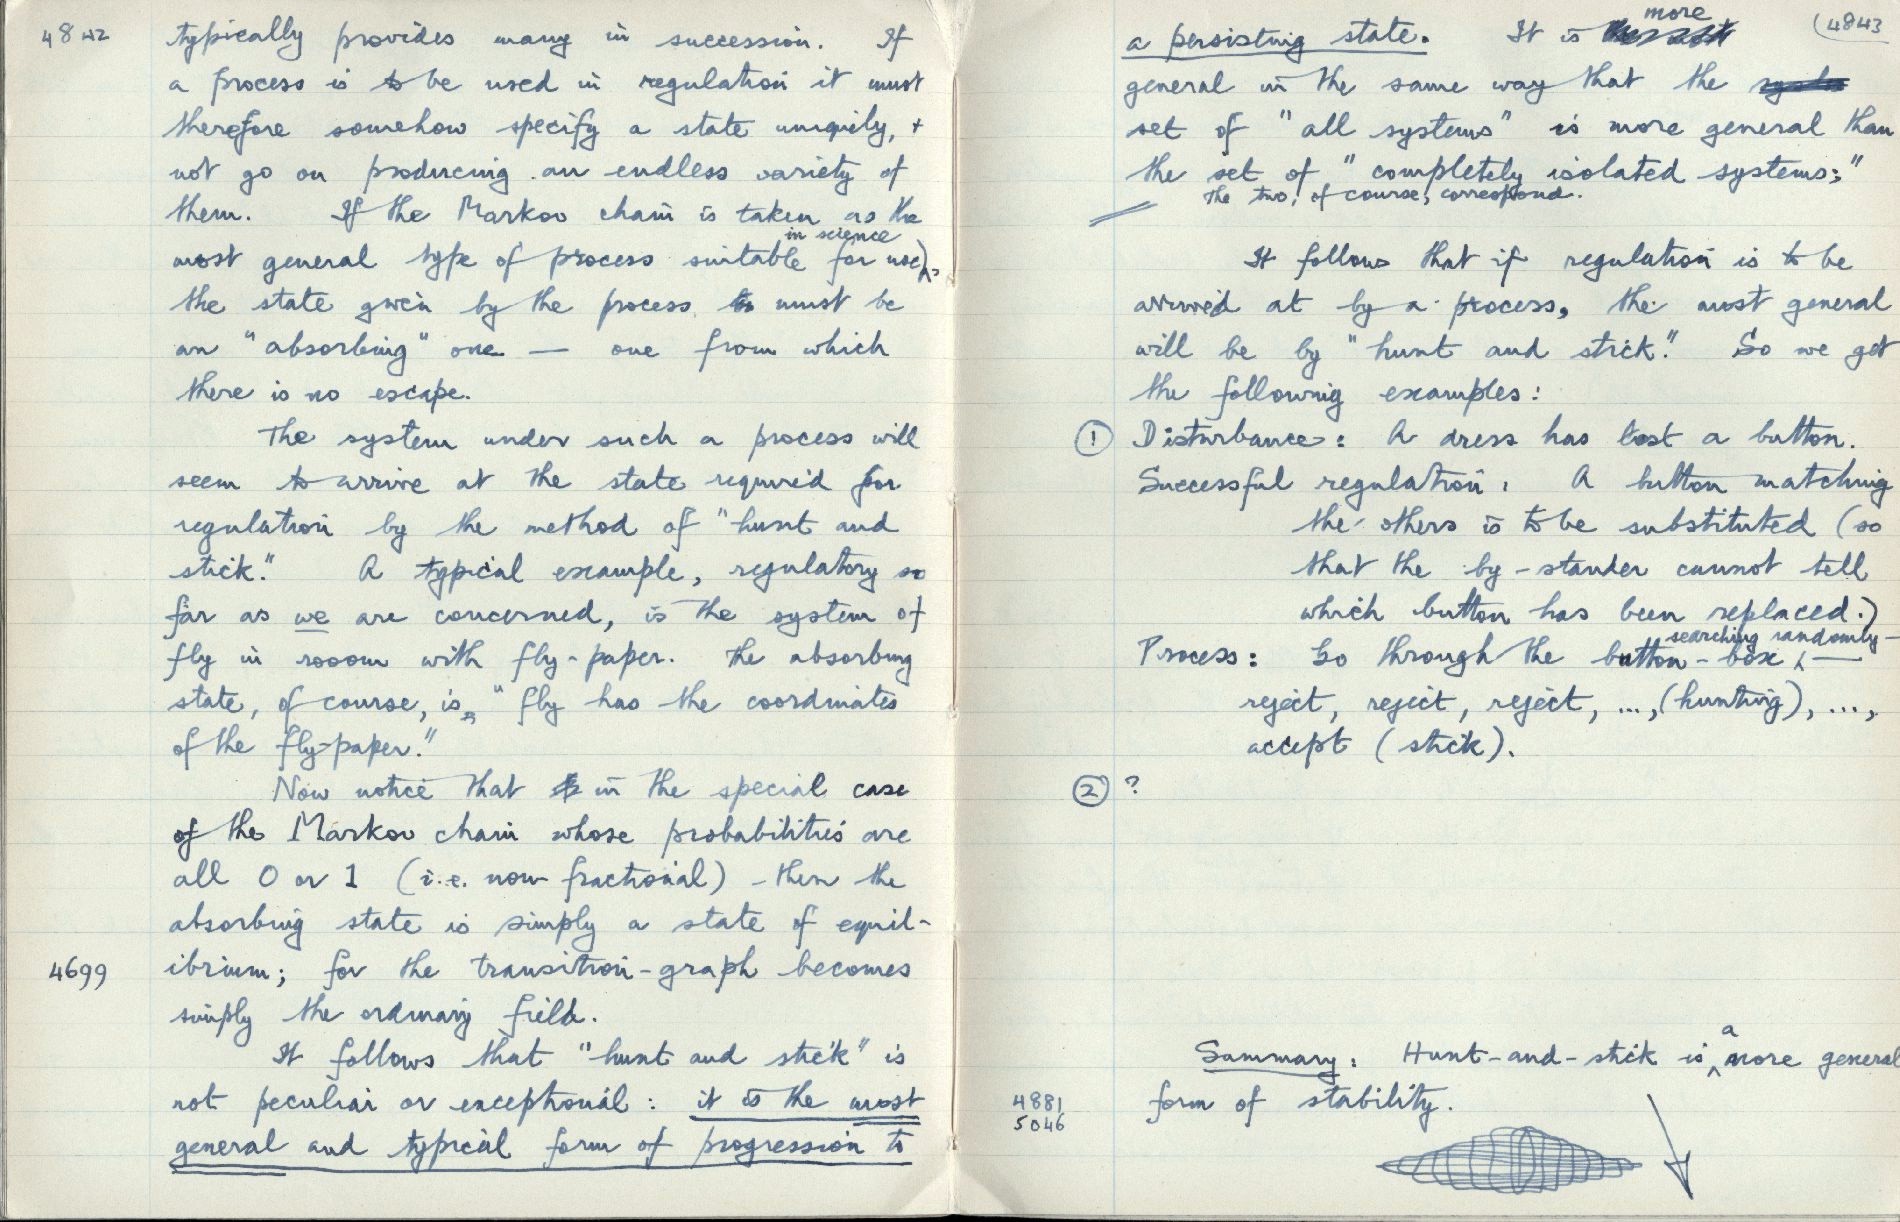 4842
typically provides many in succession. If
a process is to be used in regulation it must
therefore somehow specify a state uniquely, +
not go on producing an endless variety of
them. If the Markov chain is taken as the
in science
most general type of process suitable for use,
the state given by the process must be
an "absorbing" one — one from which
there is no escape.
The system under such a process will
seem to arrive at the state required for
regulation by the method of "hunt and
stick." A typical example, regulatory so
far as we are concerned, is the system of
fly in rooom with fly-paper. The absorbing
state, of course, is, "fly has the coordinates
of the fly-paper."
Now notice that in the special case
of the Markov chain whose probabilities are
all 0 or 1 (i.e. non-fractional) - then the
absorbing state is simply a state of equil-
4699
ibrium; for the transition-graph becomes
simply the ordinary field.
It follows that "hunt and stick" is
not peculiar or exceptional: it is the most
general and typical form of progression to
4843
more
a persisting state. It is
general in the same way that the
set of "all systems" is more general than
the set of "completely isolated systems;"
The two, of course, correspond.
It follows that if regulation is to be
arrived at by a process, the most general
will be by "hunt and stick." So we get
the following examples:
① Disturbance: A dress has lost a button.
Successful regulation: A button matching
the others is to be substituted (so
that the by-stander cannot tell
which button has been replaced.)
searching randomly —
Process: Go through the button-box, —
reject, reject, reject, ..., (hunting), ...,
accept (stick).
② ?
a
Summary: Hunt-and-stick is more general
form of stability.
4881
5046